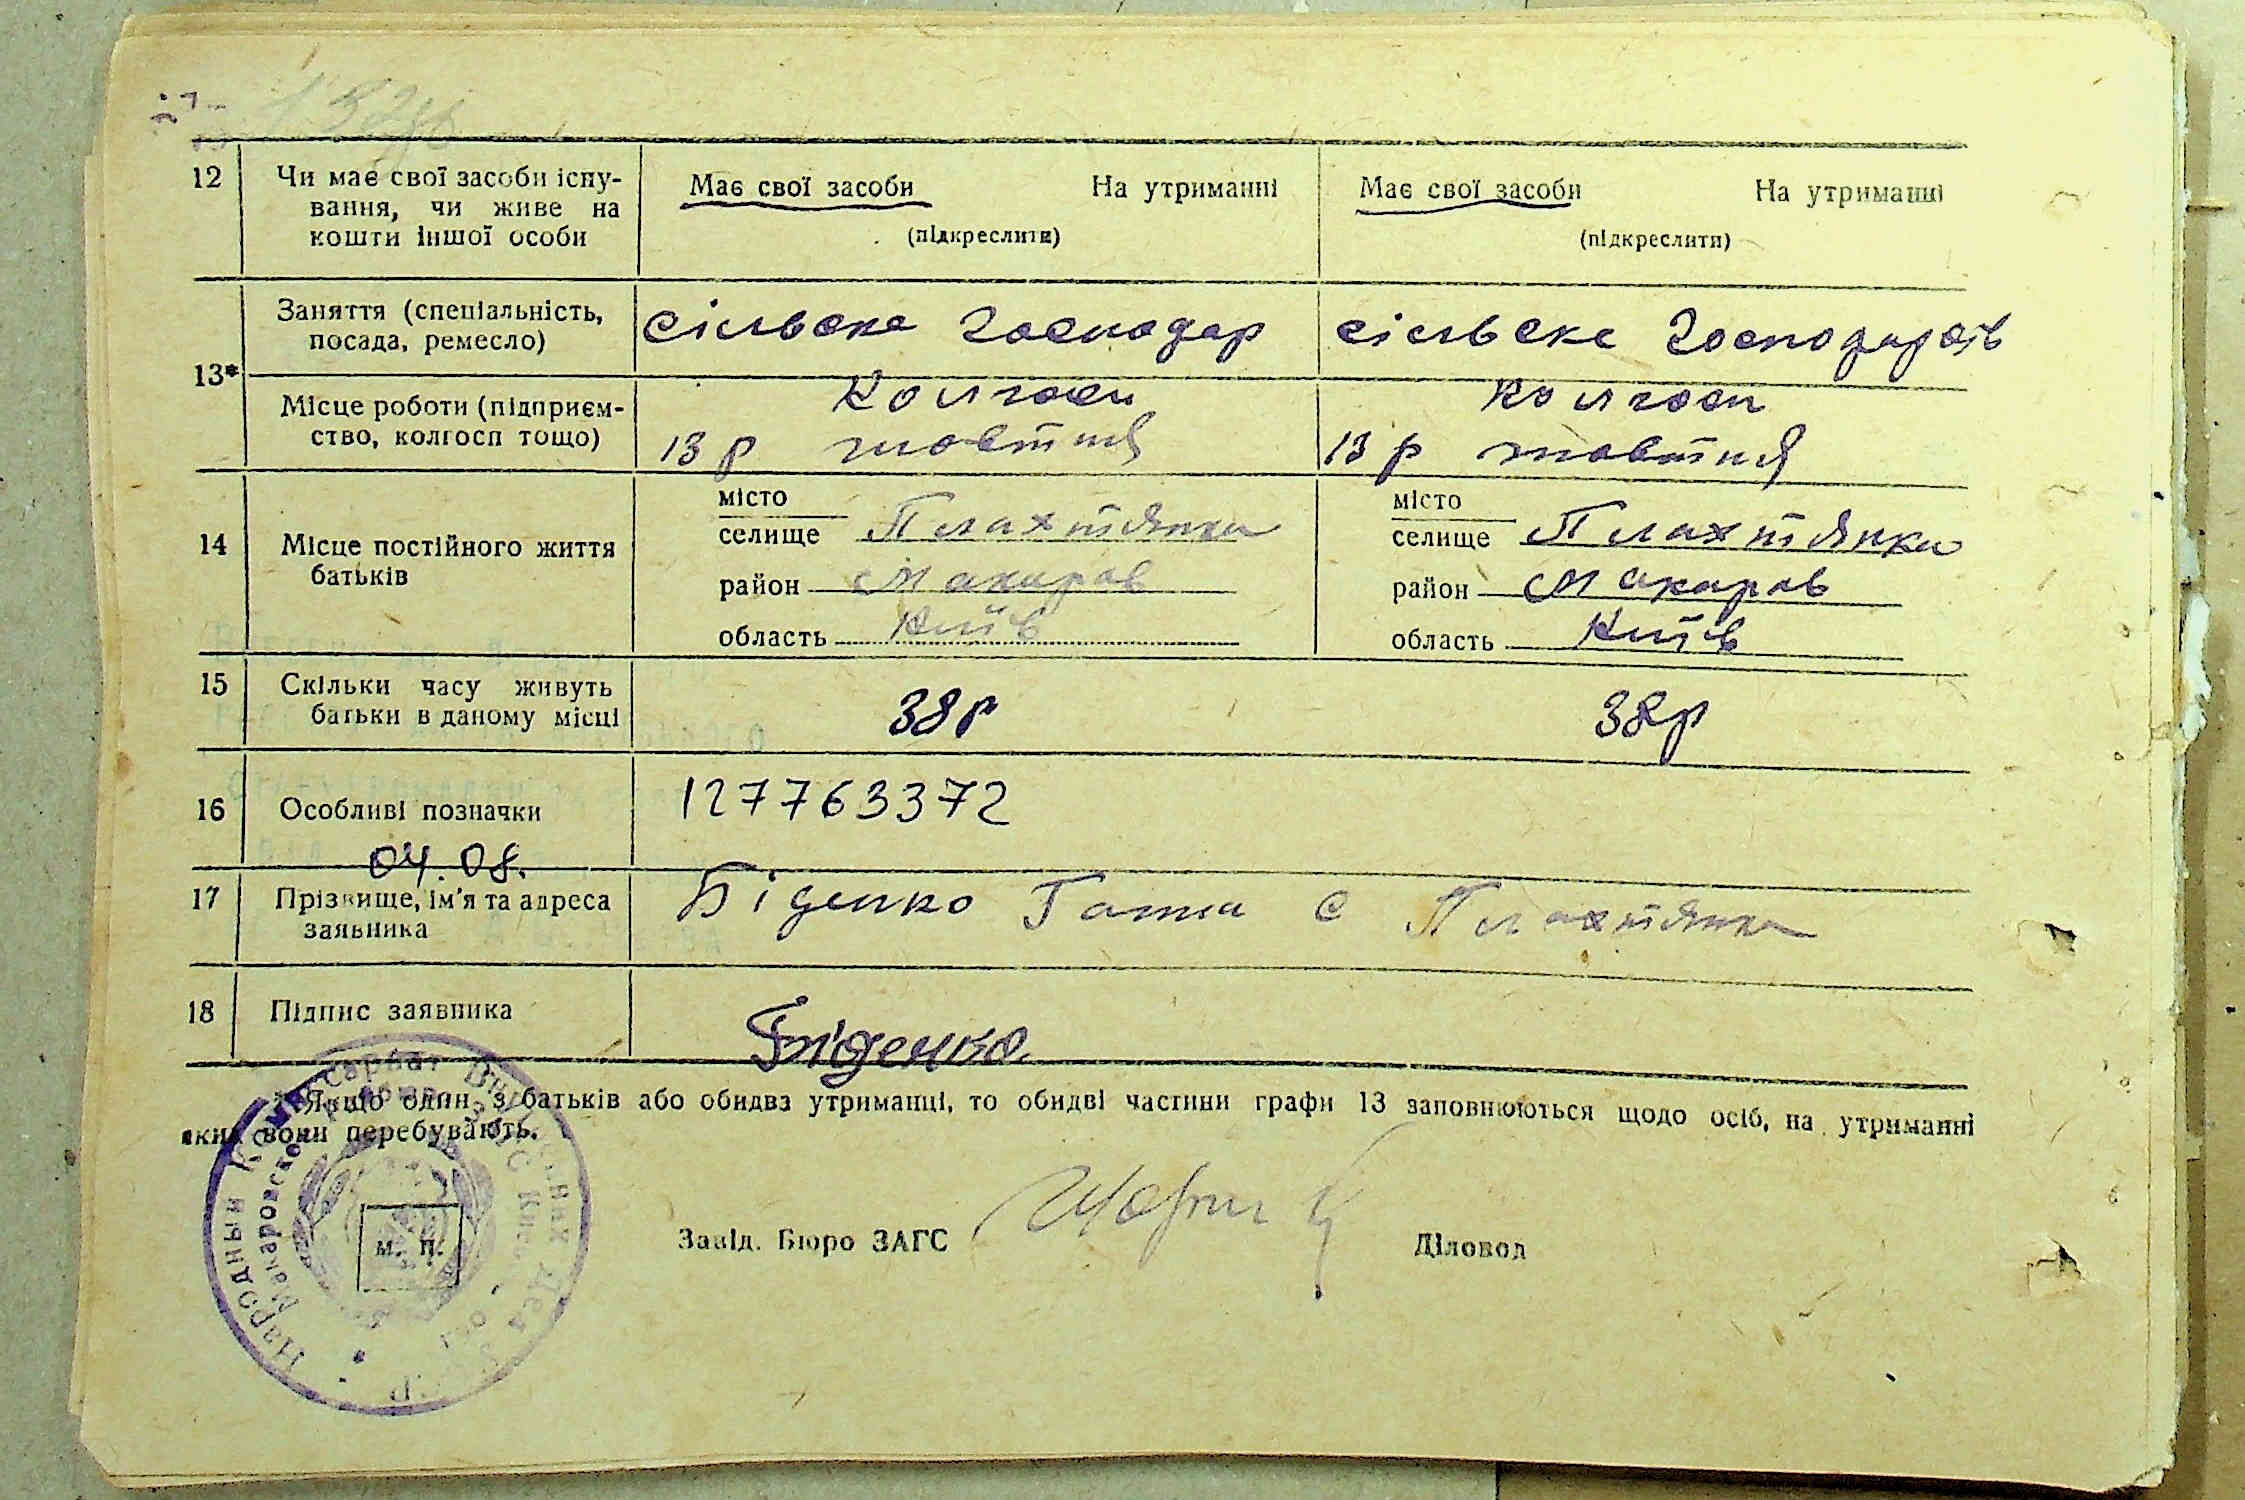 12 Чи має свої засоби існу- Має свої засоби На утриманні Має свої засоби На утриманні
вання, чи живе на
кошти іншої особи (підкреслити) (підкреслити)
Заняття (спеціальність, сільське господар сільське господарств
посада, ремесло)
13*
Місце роботи (підприєм- колгосп колгосп
ство, колгосп тощо) 13 р жовтня 13 р жовтня
місто місто
14 Місце постійного життя селище Плахтянка селище Плахтянка
батьків район Макарів район Макарів
область Київ область Київ
15 Скільки часу живуть 38 р 38 р
батьки в даному місці
16 Особливі позначки 127763372
04.08.
17 Прізвище, ім'я та адреса Біденко Ганна с Плахтянка
заявника
18 Підпис заявника Біденко
* Якщо один з батьків або обидва утриманці, то обидві частини графи 13 заповнюються щодо осіб, на утриманні
яких вони перебувають.
Народный Комиссариат Внутренних Дел
Макаровское
м. п.
Завід. Бюро ЗАГС Діловод